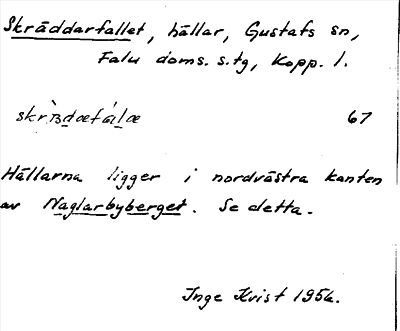 Skräddarfallet, hällar, Gustafs sn,
Falu doms. s. tg, Kopp. l.
67
Hällarna ligger i nordvästra kanten
av Naglarbyberget. Se detta.
Inge Kvist 1954.